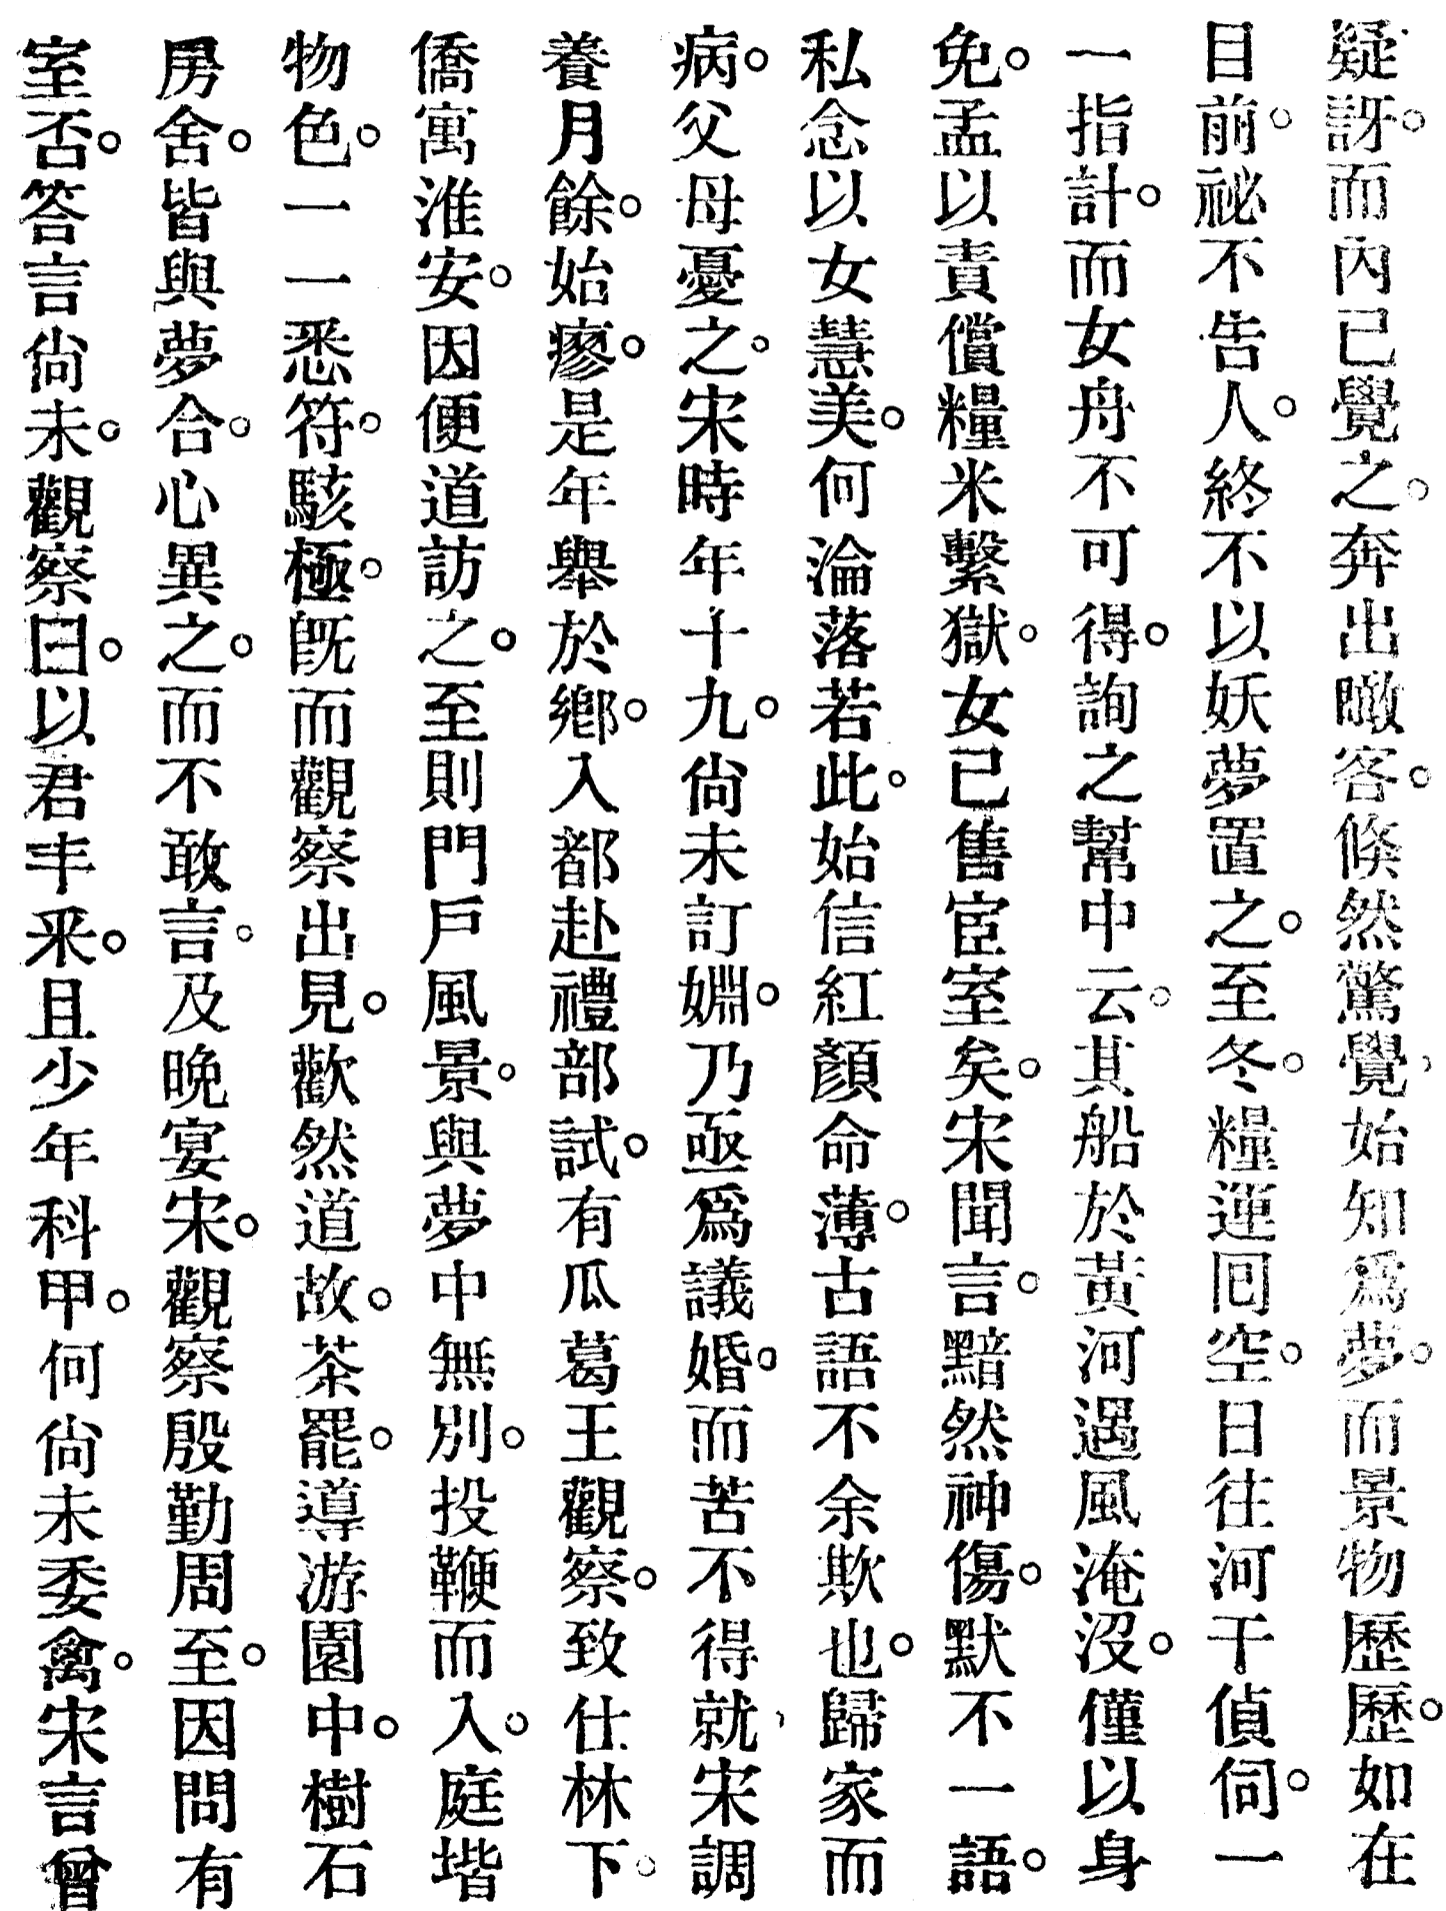 疑訝。而內已覺之。奔出瞰客。倏然驚覺、始知爲夢。而景物歷歷。如在
目前。祕不告人。終不以妖夢置之。至冬。糧運囘空。日往河干偵伺。一
一指計。而女舟不可得。詢之幫中云。其船於黃河遇風淹沒。僅以身
免。孟以責償糧米繫獄。女已售宦室矣。宋聞言。黯然神傷。默不一語。
私念以女慧美。何淪落若此。始信紅顏命薄。古語不余欺也。歸家而
病。父母憂之。宋時年十九。尙未訂婣。乃亟爲議婚。而苦不得就、宋調
養月餘。始瘳。是年舉於鄉。入都赴禮部試。有瓜葛王觀察。致仕林下。
僑寓淮安。因便道訪之。至則門戶風景。與夢中無別。投鞭而入。庭堦
物色。一一悉符。駭極。旣而觀察出見。歡然道故。茶罷。導游園中。樹石
房舍。皆與夢合。心異之。而不敢言。及晚宴宋。觀察殷勤周至。因問有
室否。答言尙未。觀察曰。以君丰采。且少年科甲。何尙未委禽。宋言曾